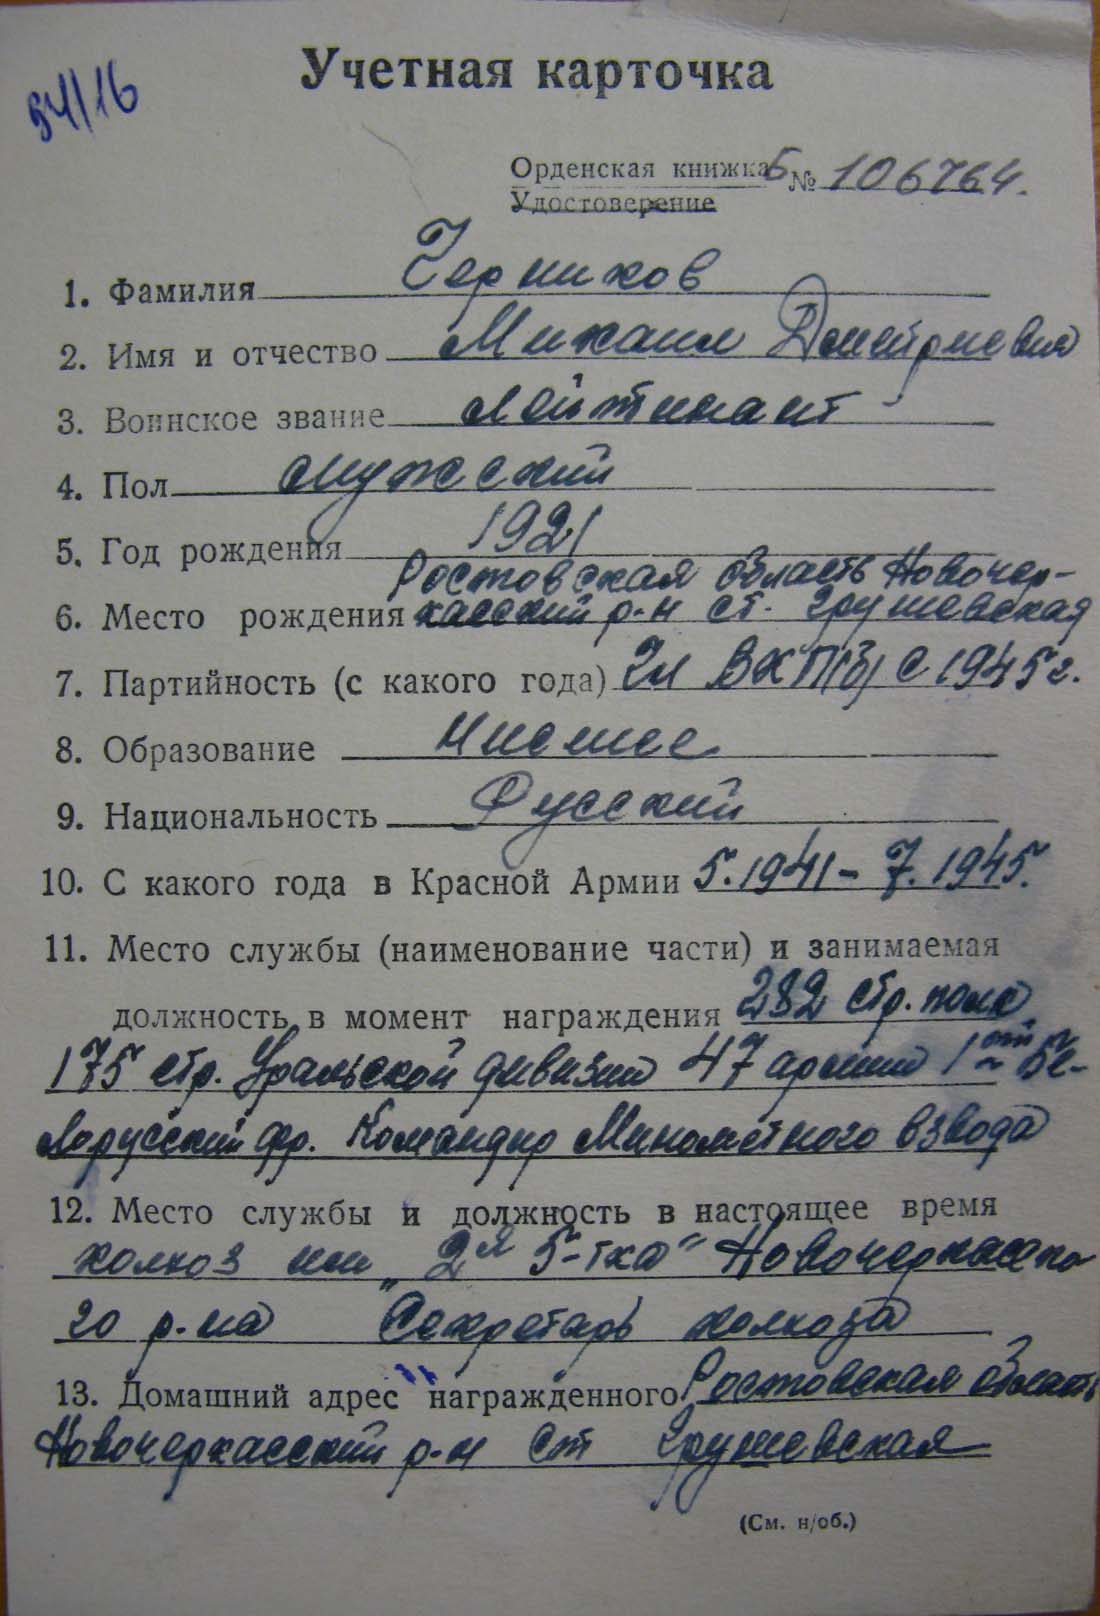 Учетная карточка
94/16
Орденская книжка Б № 106764.
Удостоверение
1. Фамилия Черников
2. Имя и отчество Михаил Дмитриевич
3. Воинское звание Лейтинант
4. Пол мужский
5. Год рождения 1921
Ростовская область Новочер-
6. Место рождения касский р-н ст. Грушевская
7. Партийность (с какого года) Чл ВКП(б) с 1945 г.
8. Образование Нисшее
9. Национальность Русский
10. С какого года в Красной Армии 5.1941 - 7.1945.
11. Место службы (наименование части) и занимаемая
должность в момент награждения 282 стр. полк
175 стр. Уральской дивизии 47 армии 1ый Бе-
лорусский фр. Командир Минометного взвода
12. Место службы и должность в настоящее время
колхоз им "2я 5-тка" Новочеркасско-
го р-на Секретарь колхоза
13. Домашний адрес награжденного Ростовская область
Новочеркасский р-н ст Грушевская
(См. н/об.)